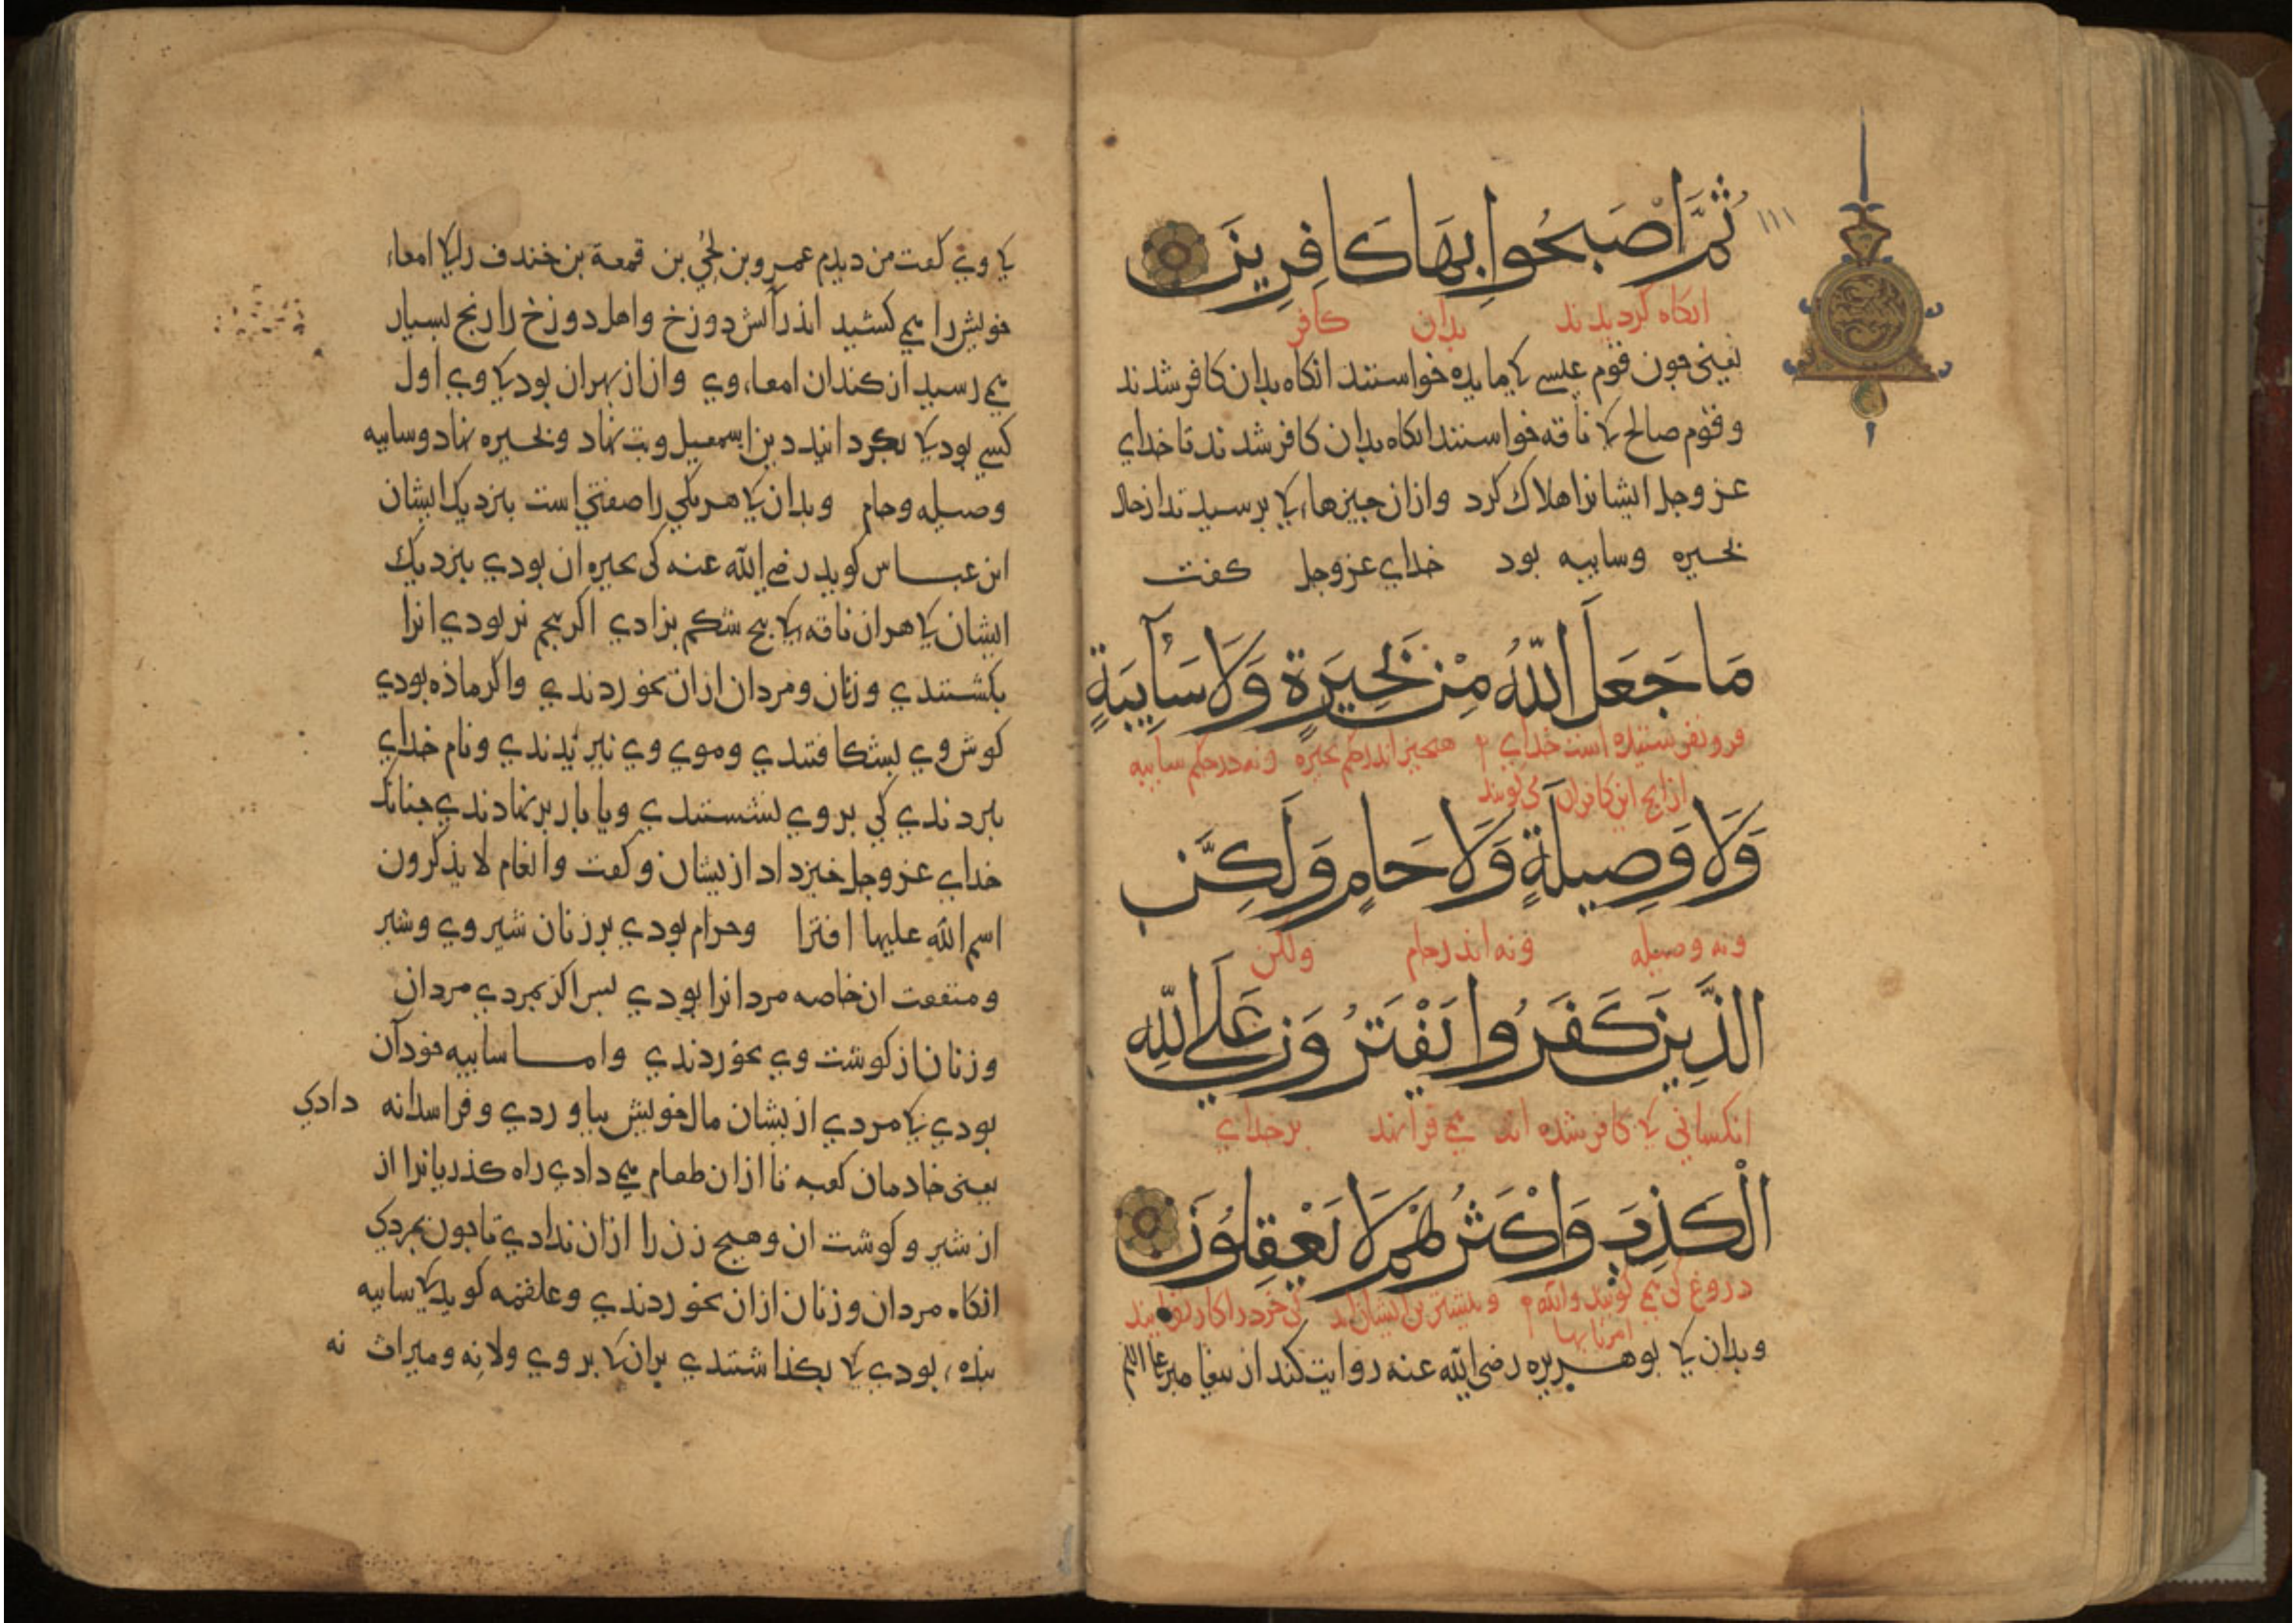 ١١١
ثُمَّ اَصْبَحُوا بِهَا كَافِرِينَ
انكاه كرديدند بدان كافر
يعنى جون قوم عيسى كى مايده خواستند انكاه بدان كافر شدند
و قوم صالح كى ناقه خواستند انكاه بدان كافر شدند تا خداي
عز وجل ايشانرا هلاك كرد وازان جيزهاء كى برسيدند از حال
بحيره وسايبه بود خداي عزوجل كفت
مَا جَعَلَ اللّٰهُ مِنْ بَحِيرَةٍ وَلَا سَآيِبَةٍ
فرو نفرستيده است خداي هيجيز اندر حكم بحيره ونه در حكم سايبه
از انج اين كافران مى كويند
وَلَا وَصِيلَةٍ وَلَا حَامٍ وَلَكِنَّ
ونه وصيله ونه اندر حام ولكن
الَّذِينَ كَفَرُوا يَفْتَرُونَ عَلَي اللّٰهِ
انكساني كى كافر شده اند مي فرانهند بر خداي
الْكَذِبَ وَاَكْثَرُهُمْ لَا يَعْقِلُونَ
دروغ كى مي كويند والله وبيشترين ايشان اند كى خرد را كار نفرمايند
امرنا بها
وبدان كى بوهريره رضى الله عنه روايت كند از بيغامبر
كى وي كفت من ديدم عمرو بن لحُي بن قمعة بن خندف را كى امعاء
خويش را مي كشيد اندر آتش دوزخ واهل دوزخ را رنج بسيار
مي رسيد ان كندان امعاء وي وان از بهران بود كى وي اول
كسي بود كى بكردانيد دين اسمعيل وبت نهاد وبحيره نهاد وسايبه
وصيله وحام وبدان كى هر يكي را صفتي است بنزديك ايشان
ابن عباس كويد رضي الله عنه كى بحيره ان بودي بنزديك
ايشان كى هران ناقه كى بنج شكم بزادي اكر بنجم نر بودي انرا
بكشتندي وزنان ومردان ازان بخوردندي واكر ماذه بودي
كوش وي بشكافتندي وموي وي نبريدندي ونام خداي
نبردندي كى بر وي بنشستندي ويا بار برنهادندي جنانك
خداي عز وجل خبر داد ازيشان وكفت وانعام لا يذكرون
اسم الله عليها افترا وحرام بودي بر زنان شير وي وشير
ومنفعت ان خاصه مردانرا بودي بس اكر بمردي مردان
وزنان از كوشت وي بخوردندي واما سايبه خود آن
بودي كى مردي ازيشان مال خويش بياوردي وفرا سدانه دادي
يعنى خادمان كعبه تا ازان طعام مي دادي راه كذريانرا از
از شير وكوشت ان وهيج زن را ازان ندادي تا جون بمردي
انكاه مردان وزنان ازان بخوردندي وعلقمه كويد كى سايبه
بنده بودي كى بكذاشتندي بران كى بر وي ولا نه وميراث نه